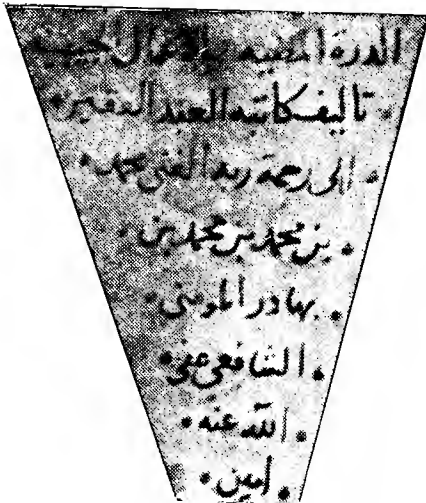 الدرة المضيه بالاعمال الجيبيه
تاليف كاتبه العبد الفقير
الى رحمة ربه الغنى محمد
بن محمد بن محمد بن
بهادر المومنى
الشافعى عفى
الله عنه
امين